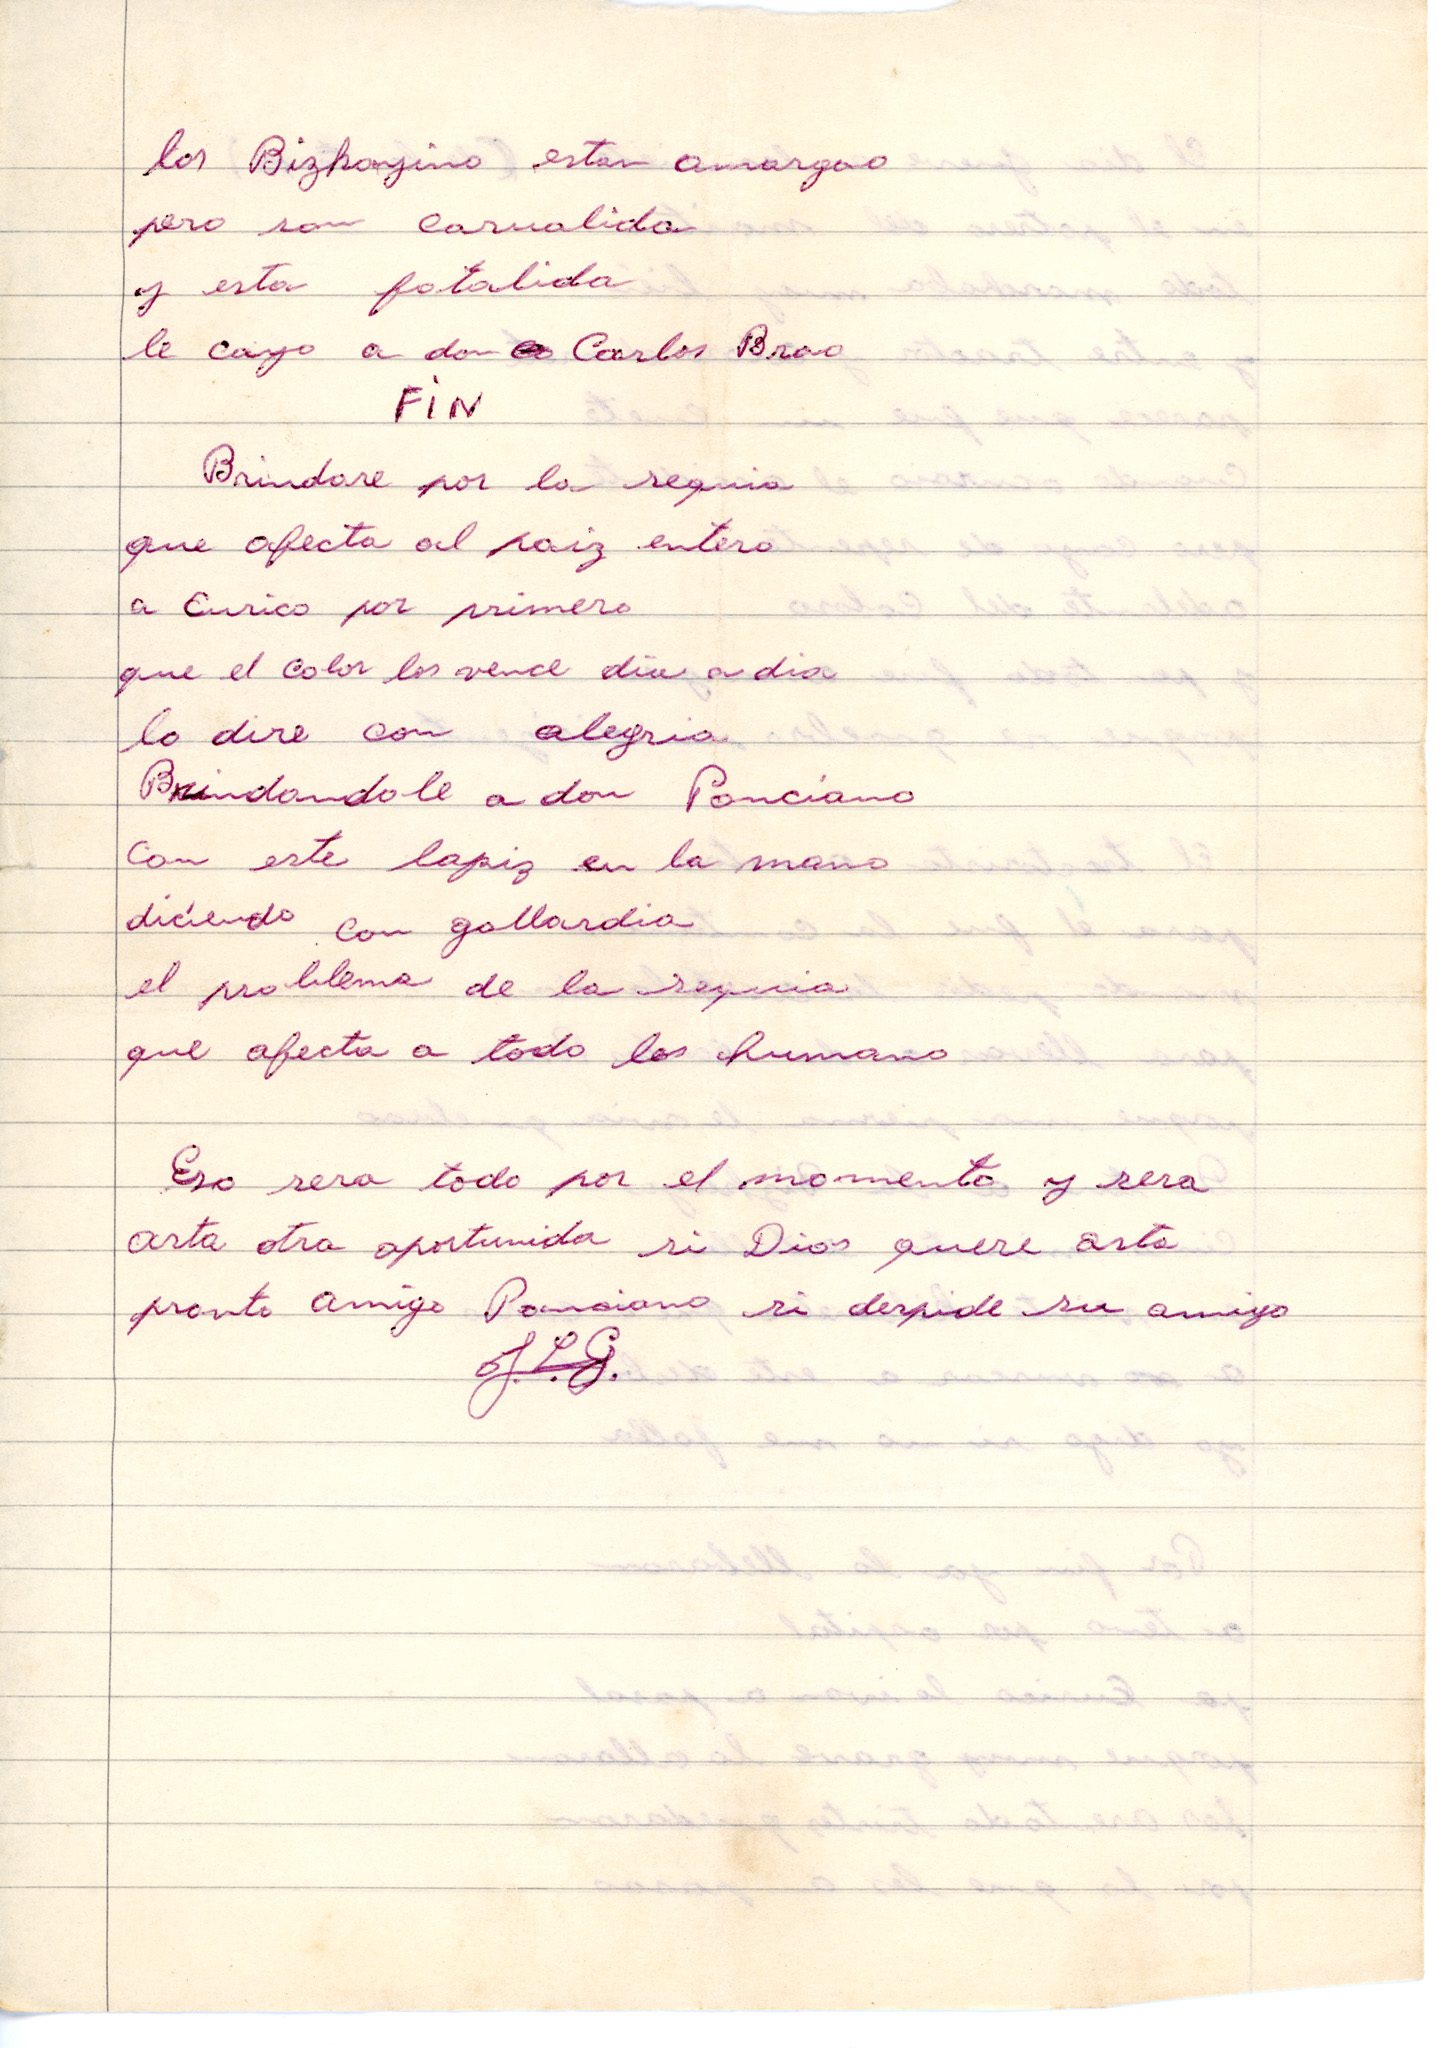 los Bizkayino estan amargao
pero son casualida
y esta fatalida
le cayo a don Carlos Brao
FIN
Brindare por la sequia
que afecta al paiz entero
a Curico por primero
que el calor los vence dia a dia
lo dire con alegria
Brindandole a don Ponciano
Con este lapiz en la mano
diciendo con gallardia
el problema de la sequia
que afecta a todo los humano
Eso sera todo por el momento y sera
asta otra oportunida si Dios quere asta
pronto amigo Ponciano si despide su amigo
J.L.G.